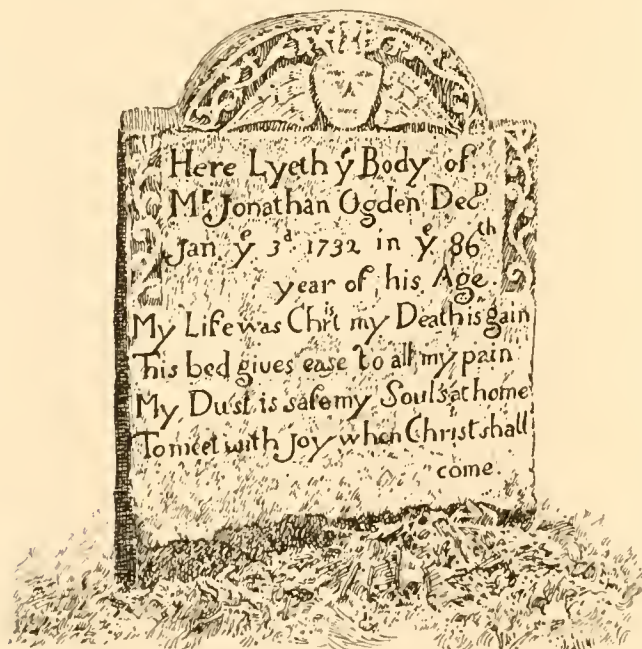 Here Lyeth yᵉ Body of
Mʳ Jonathan Ogden Decᴰ
Jan yᵉ 3ᵈ 1732 in yᵉ 86ᵗʰ
year of his Age.
My Life was Chrⁱˢt my Death is gain
This bed gives ease to all my pain
My Dust is safe my Soul's at home
To meet with Joy when Christ shall
come.